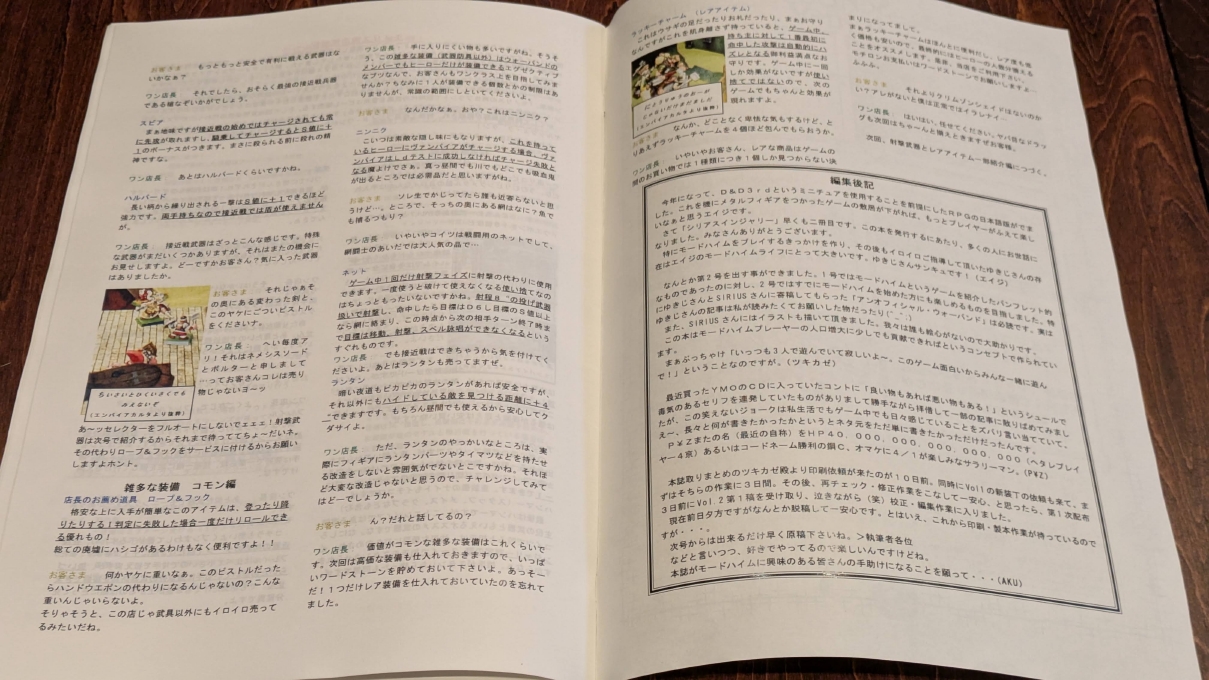 お客さま　もっともっと安全で有利に戦える武器はな
いかなぁ？
ワン店長　それでしたら、おそらく最強の接近戦兵器
である槍なぞいかがでしょう。
スピア
まぁ地味ですが接近戦の始めではチャージされても常
に先攻が取れますし、騎乗してチャージするとＳ値に＋
１のボーナスがつきます。まさに殺られる前に殺れの精
神ですな。
ワン店長　あとはハルバードくらいですかね。
ハルバード
長い柄から繰り出される一撃はＳ値に＋１できるほど
強力です。両手持ちなので接近戦では盾が使えません
が。
ワン店長　接近戦武器はざっとこんな感じです。特殊
な武器がまだいくつかありますが、それはまたの機会に
お見せしますよ。どーですかお客さん？気に入った武器
はありましたか。
お客さま　それじゃぁそ
の奥にある変わった剣と、
このヤケにごついピストル
をくださいナ。
ワン店長　へい毎度ア
リ！それはネメシスソード
とボルターと申しまして
…ってお客さんコレは売り
物じゃないヨーッ
ちいさいとひくいさくでも
みえないぞ
（エンパイアカルタより抜粋）
あ～ッセレクターをフルオートにしないでェェェ！射撃武
器は次号で紹介するからそれまで待っててちょ～だいネ。
その代わりロープ＆フックをサービスに付けるからお願い
しますよホント。
雑多な装備　コモン編
店長のお薦め道具　ロープ＆フック
格安な上に入手が簡単なこのアイテムは、登ったり降
りたりする！判定に失敗した場合一度だけリロールでき
る優れもの！
総ての廃墟にハシゴがあるわけもなく便利ですよ！！
お客さま　何かヤケに重いなぁ。このピストルだった
らハンドウエポンの代わりになるんじゃないの？こんな
重いんじゃいらないよ。
そりゃそうと、この店じゃ武具以外にもイロイロ売って
るみたいだね。
ワン店長　手に入りにくい物も多いですがね。そうそ
う、この雑多な装備（武器防具以外）はウォーバンドの
メンバーでもヒーローだけが装備できるエグゼクティブ
なブツなんで、お客さんもワンクラス上を目指してみま
せんか？ちなみに１人が装備できる個数とかの制限はあ
りませんが、常識の範囲にしといてくださいよ。
お客さま　なんだかなぁ。おや？これはニンニク？
ニンニク
こいつは素敵な隠し味にもなりますが、これを持って
いるヒーローにヴァンパイアがチャージする場合、ヴァ
ンパイアはＬｄテストに成功しなければチャージ失敗と
なる魔よけでさぁ。真っ昼間でも川でもどこでも吸血鬼
が出るところでは必需品だと思いますがね。
お客さま　ソレ生でかじってたら誰も近寄らないと思
うけど…。ところで、そっちの奥にある網はなに？魚で
も捕るつもり？
ワン店長　いやいやコイツは戦闘用のネットでして、
網闘士のあいだでは大人気の品で…
ネット
ゲーム中１回だけ射撃フェイズに射撃の代わりに使用
できます。一度使うと破けて使えなくなる使い捨てなの
はちょっともったいないですかね。射程８”の投げ武器
扱いで射撃し、命中したら目標はＤ６しＳ目標の値以上
なら網に絡まり、この時点から次の相手ターン終了時ま
で目標は移動、射撃、スペル詠唱ができなくなるという
すぐれものです。
ワン店長　でも接近戦はできちゃうから気を付けてく
ださいよぉ。あとはランタンも売ってますぜ。
ランタン
暗い夜道もピカピカのランタンがあれば安全ですが、
それ以外にもハイドしている敵を見つける距離に＋４
”できますです。もちろん昼間でも使えるから安心してク
ダサイよ。
ワン店長　ただ、ランタンのやっかいなところは、実
際にフィギアにランタンパーツやタイマツなどを持たせ
る改造をしないと雰囲気がでないとこですかね。それほ
ど大変な改造じゃないと思うので、チャレンジしてみて
はどーでしょうか。
お客さま　ん？だれと話してるの？
ワン店長　価値がコモンな雑多な装備はこれくらいで
す。次回は高価な装備も仕入れておきますので、いっぱ
いワードストーンを貯めておいて下さいよ。あっそー
だ！１つだけレア装備を仕入れておいていたのを忘れて
ました。
ラッキーチャーム　（レアアイテム）
これはウサギの足だったりお札だったり、まぁお守り
なんですがこれを肌身離さず持っていると、ゲーム中、
持ち主に対して１番最初に
命中した攻撃は自動的にハ
ズレとなる御利益満点なお
守りです。ゲーム中に一回
しか効果がないですが使い
捨てではないので、次の
ゲームでもちゃんと効果が
現れますよ。
（エンパイアカルタより抜粋）
お客さま　なんか、どことなく卑怯な気もするけど、と
りあえずラッキーチャームを４個ほど包んでもらおうか。
ワン店長　いやいやお客さん、レアな商品はゲームの
間のお買い物では１種類につき１個しか見つからない決
まりになってまして。
まぁラッキーチャームはほんとに便利だし、レア度も低
く価格も安いので、最終的にはヒーローの人数分揃える
ことをオススメします。是非、当店をご利用下さい。
モチロンお支払いはワードストーンでお願いしますよ…
ふふふ。
お客さま　それよりクリムゾンシェイドはないのか
い？アレがないと僕は正常ではイラレナイ…
ワン店長　はいはい、任せてください。ヤバ目なドラッ
グも次回はちゃ～んと揃えときますぜお客様。
次回、射撃武器とレアアイテム一部紹介編につづく。
編集後記
今年になって、Ｄ＆Ｄ３ｒｄというミニチュアを使用することを前提にしたＲＰＧの日本語版がでま
した。これを機にメタルフィギアをつかったゲームの敷居が下がれば、もっとプレイヤーがふえて楽し
いなぁと思うエイジです。
さて「シリアスインジャリー」早くも二冊目です。この本を発行するにあたり、多くの人にお世話に
なりました。みなさんありがとうございます。
特にモードハイムをプレイするきっかけを作り、その後もイロイロご指導して頂いたゆきじさんの存
在はエイジのモードハイムライフにとって大きいです。ゆきじさんサンキュです！（エイジ）
なんとか第２号を出す事ができました。１号ではモードハイムというゲームを紹介したパンフレット的
なものであったのに対し、２号ではすでにモードハイムを始めた方にも楽しめるものを目指しました。特
にゆきじさんとＳＩＲＩＵＳさんに寄稿してもらった「アンオフィシャル・ウォーバンド」は必読です。実は
ゆきじさんの記事は私が読みたくてお願いした物だったり(^_^;)
また、ＳＩＲＩＵＳさんにはイラストも描いて頂きました。我々は誰も絵心がないので大助かりです。
この本はモードハイムプレーヤーの人口増大に少しでも貢献できればというコンセプトで作られてい
ます。
まぁぶっちゃけ「いっつも３人で遊んでいて寂しいよ～。このゲーム面白いからみんな一緒に遊ん
で！」ということなのですが。（ツキカゼ）
最近買ったＹＭＯのＣＤに入っていたコントに「良い物もあれば悪い物もある！」というシュールで
毒気のあるセリフを連発していたものがありまして勝手ながら拝借して一部の記事に散りばめてみまし
たが、この笑えないジョークは私生活でもゲーム中でも日々感じていることをズバリ言い当てていて、
えー、長々と何が書きたかったかというとネタ元をただ単に書きたかっただけだったんです。
Ｐ￥Ｚまたの名（最近の自称）をＨＰ４０，０００，０００，０００，０００（ヘタレプレイ
ヤー４京）あるいはコードネーム勝利の銅Ｃ、オマケに４／１が楽しみなサラリーマン。(P￥Z)
本誌取りまとめのツキカゼ殿より印刷依頼が来たのが１０日前。同時にVol1の新装丁の依頼も来て、ま
ずはそちらの作業に３日間。その後、再チェック・修正作業をこなして一安心、と思ったら、第１次配布
３日前にVol.２第１稿を受け取り、泣きながら（笑）校正・編集作業に入りました。
現在前日夕方ですがなんとか脱稿して一安心です。とはいえ、これから印刷・製本作業が待っているので
すが・・・。
次号からは出来るだけ早く原稿下さいね。＞執筆者各位
などと言いつつ、好きでやってるので楽しいんですけどね。
本誌がモードハイムに興味のある皆さんの手助けになることを願って・・・(AKU)